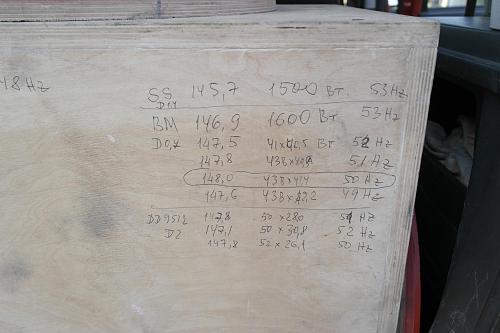 48Hz
SS 145,7 1500 Вт. 53Hz
D1,1
BM 146,9 1600 Вт 53Hz
D0,4 147,5 41x40,5 Вт 52Hz
147,8 43В x 51Hz
148,0 43В x 41,4 50 Hz
147,6 43В x 42,2 49 Hz
DD9512 147,8 50 x 28,0 Hz
D2 147,1 50 x 30,8 52 Hz
147,8 52 x 26,1 50 Hz